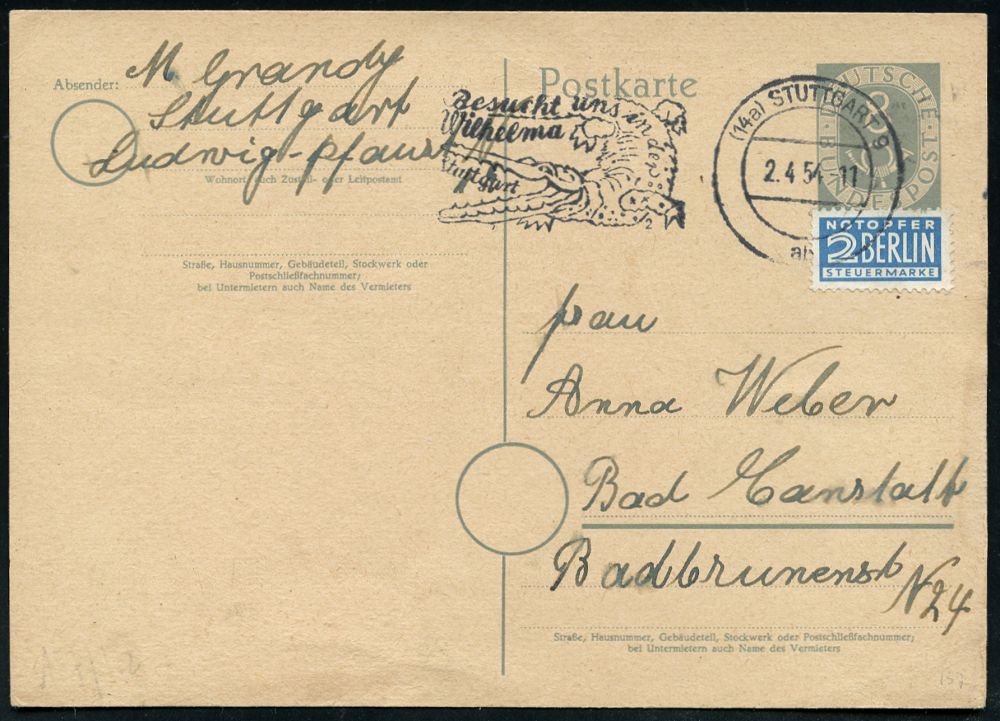 Absender: M. Grandy
Stuttgart
Ludwig-Pfaust
Wohnort, auch Zustell- oder Leitpostamt
Straße, Hausnummer, Gebäudeteil, Stockwerk oder
Postschließfachnummer;
bei Untermietern auch Name des Vermieters
Postkarte
Besucht uns in der
Wilhelma
Stuttgart
2
(14a) STUTTGART 9
2.4.54.-11
DEUTSCHE BUNDESPOST
8
NOTOPFER
2 BERLIN
STEUERMARKE
Frau
Anna Weber
Bad Canstatt
Badbrunenst
N24
Straße, Hausnummer, Gebäudeteil, Stockwerk oder Postschließfachnummer;
bei Untermietern auch Name des Vermieters
157